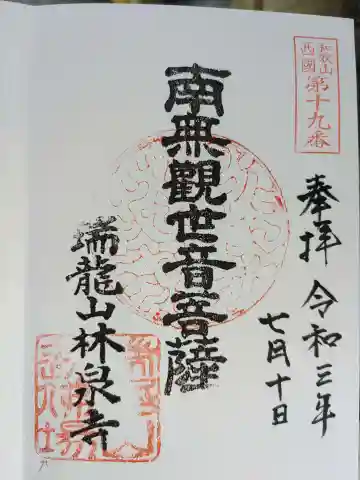 和歌山
西國
第十九番
奉拝
令和三年
七月十日
南無觀世音菩薩
瑞龍山林泉寺